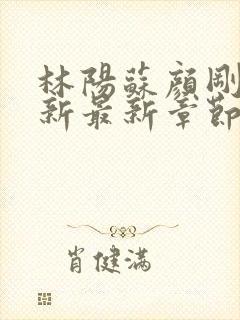 林陽蘇顏剛
新最新章節
肖健滿